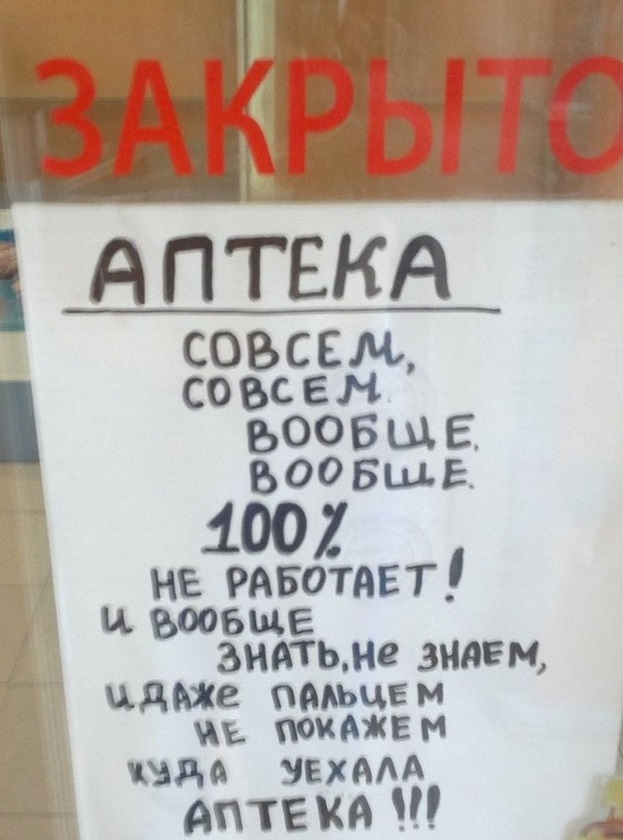 ЗАКРЫТО
АПТЕКА
СОВСЕМ,
СОВСЕМ.
ВООБЩЕ.
ВООБЩЕ.
100%
НЕ РАБОТАЕТ!
И ВООБЩЕ
ЗНАТЬ,НЕ ЗНАЕМ,
И ДАЖЕ ПАЛЬЦЕМ
НЕ ПОКАЖЕМ
КУДА УЕХАЛА
АПТЕКА!!!